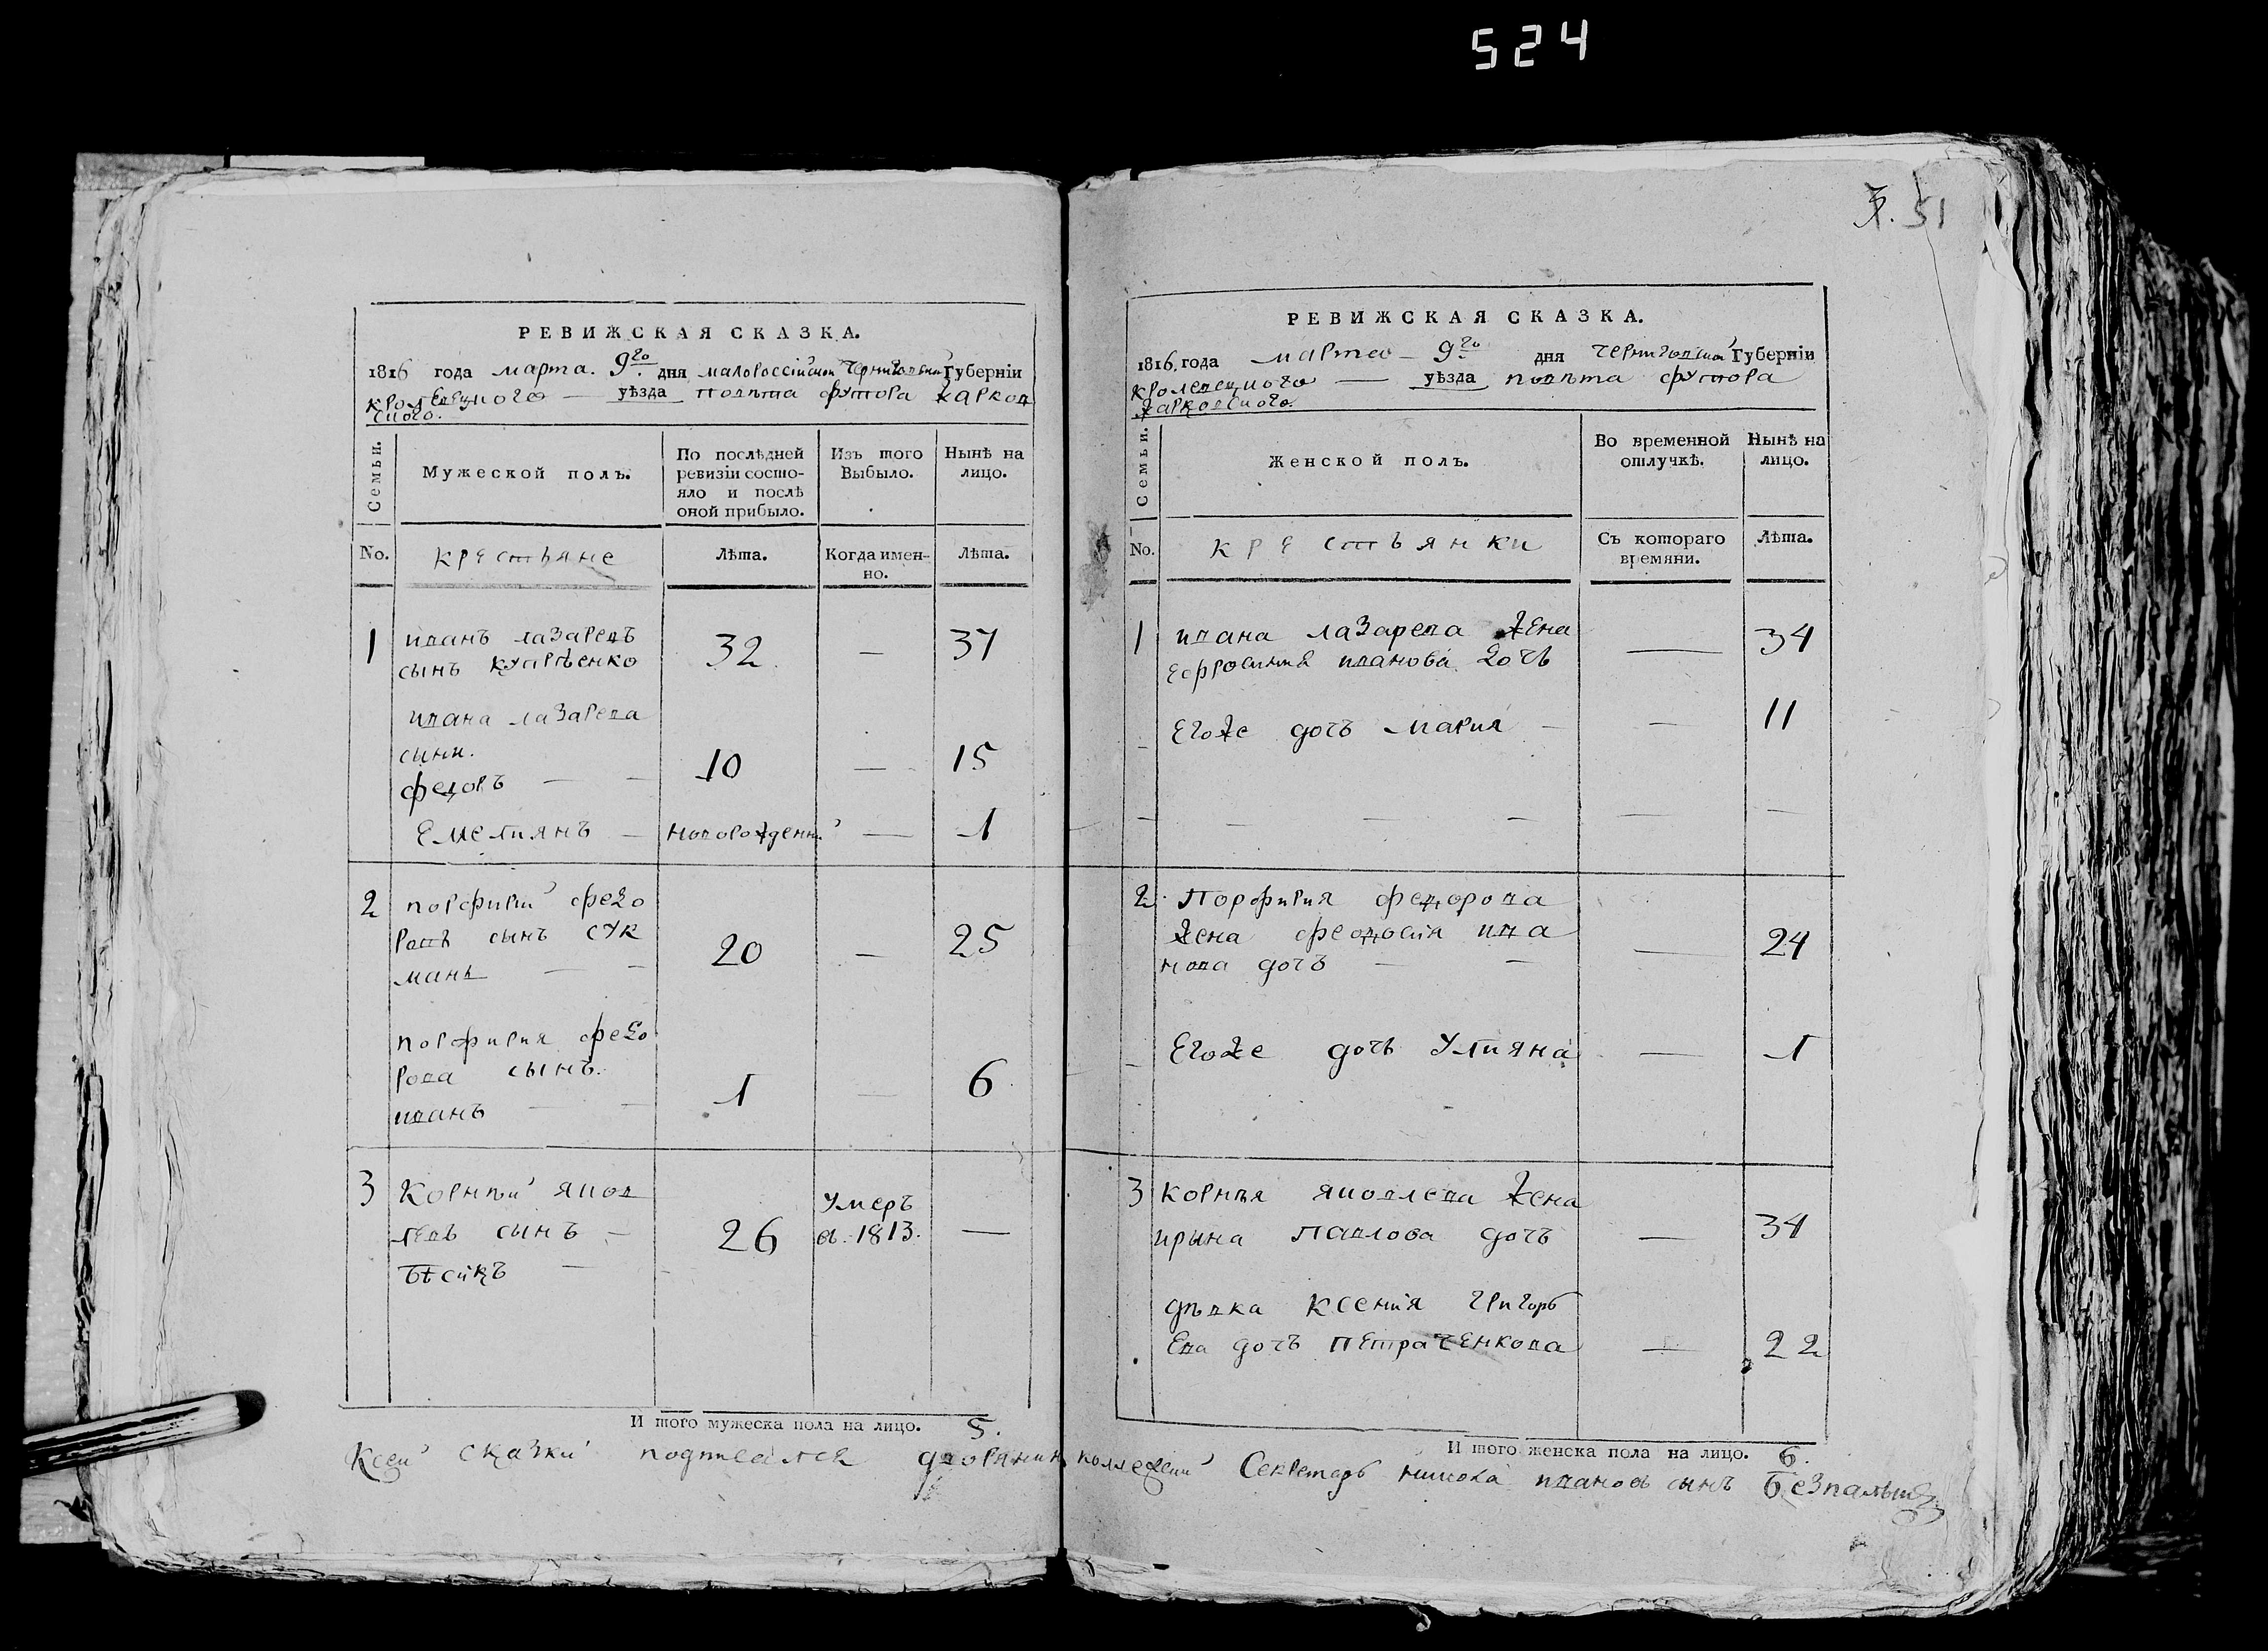 524
51
РЕВИЖСКАЯ СКАЗКА.
1816 года марта. 9го дня малороссійской Черниговской Губерніи
кролевецкого — уѣзда повѣта футора харков
ского.
Семьи.
Мужеской полъ.
По послѣдней
ревизіи состо-
яло и послѣ
оной прибыло.
Изъ того
Выбыло.
Нынѣ на
лицо.
No.
крестьяне
Лѣта.
Когда имен-
но.
Лѣта.
1 иванъ лазаревъ
сынъ 32 — 37
ивана лазарева
сыни.
федоръ — — 10 — 15
Емелиянъ — новорожденны — 1
2 порфирій федо
ровъ сынъ сук
манъ — — 20 — 25
порфирия федо
рова сынъ.
иванъ — — 1 — 6
3 Корнѣй яков
левъ сынъ — 26 Умеръ
в. 1813. —
И того мужеска пола на лицо. 5.
РЕВИЖСКАЯ СКАЗКА.
1816. года марта — 9го дня черниговской Губерніи
кролевецкого — уѣзда повѣта футора
харковского.
Семьи.
Женской полъ.
Во временной
отлучкѣ.
Нынѣ на
лицо.
No.
крестьянки
Съ котораго
времяни.
Лѣта.
1 ивана лазарева жена
ефросиния иванова дочь — 34
Егоже дочь мария — — 11
— — — — — —
2. Порфирия федорова
жена феодосия ива
нова дочъ — — — 24
Егоже дочь Улияна — 1
3 корнѣя яковлева жена
ирина Павлова дочъ — 34
дѣвка ксения григорь
ева дочъ петраченкова — 22
И того женска пола на лицо. 6.
Ксей сказки подписался дворянин колежский Секретарь никола иванов сынъ Безпалый